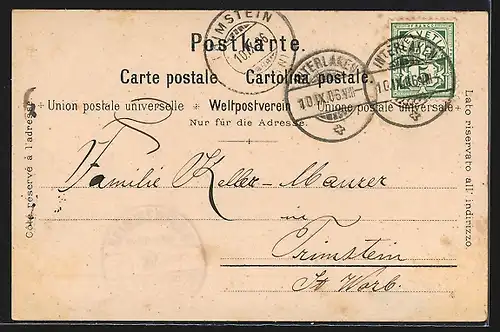 TRIMSTEIN
10.IX.06
Postkarte.
HELVETIA
INTERLAKEN
10.IX.06.VIII
INTERLAKEN
10.IX.06.VIII
Carte postale. Cartolina postale.
Union postale universelle Weltpostverein Unione postale universale
Nur für die Adresse.
Côté réservé à l'adresse.
Lato riservato all' indirizzo.
Familie Keller-Maurer
in
Trimstein
St Worb.